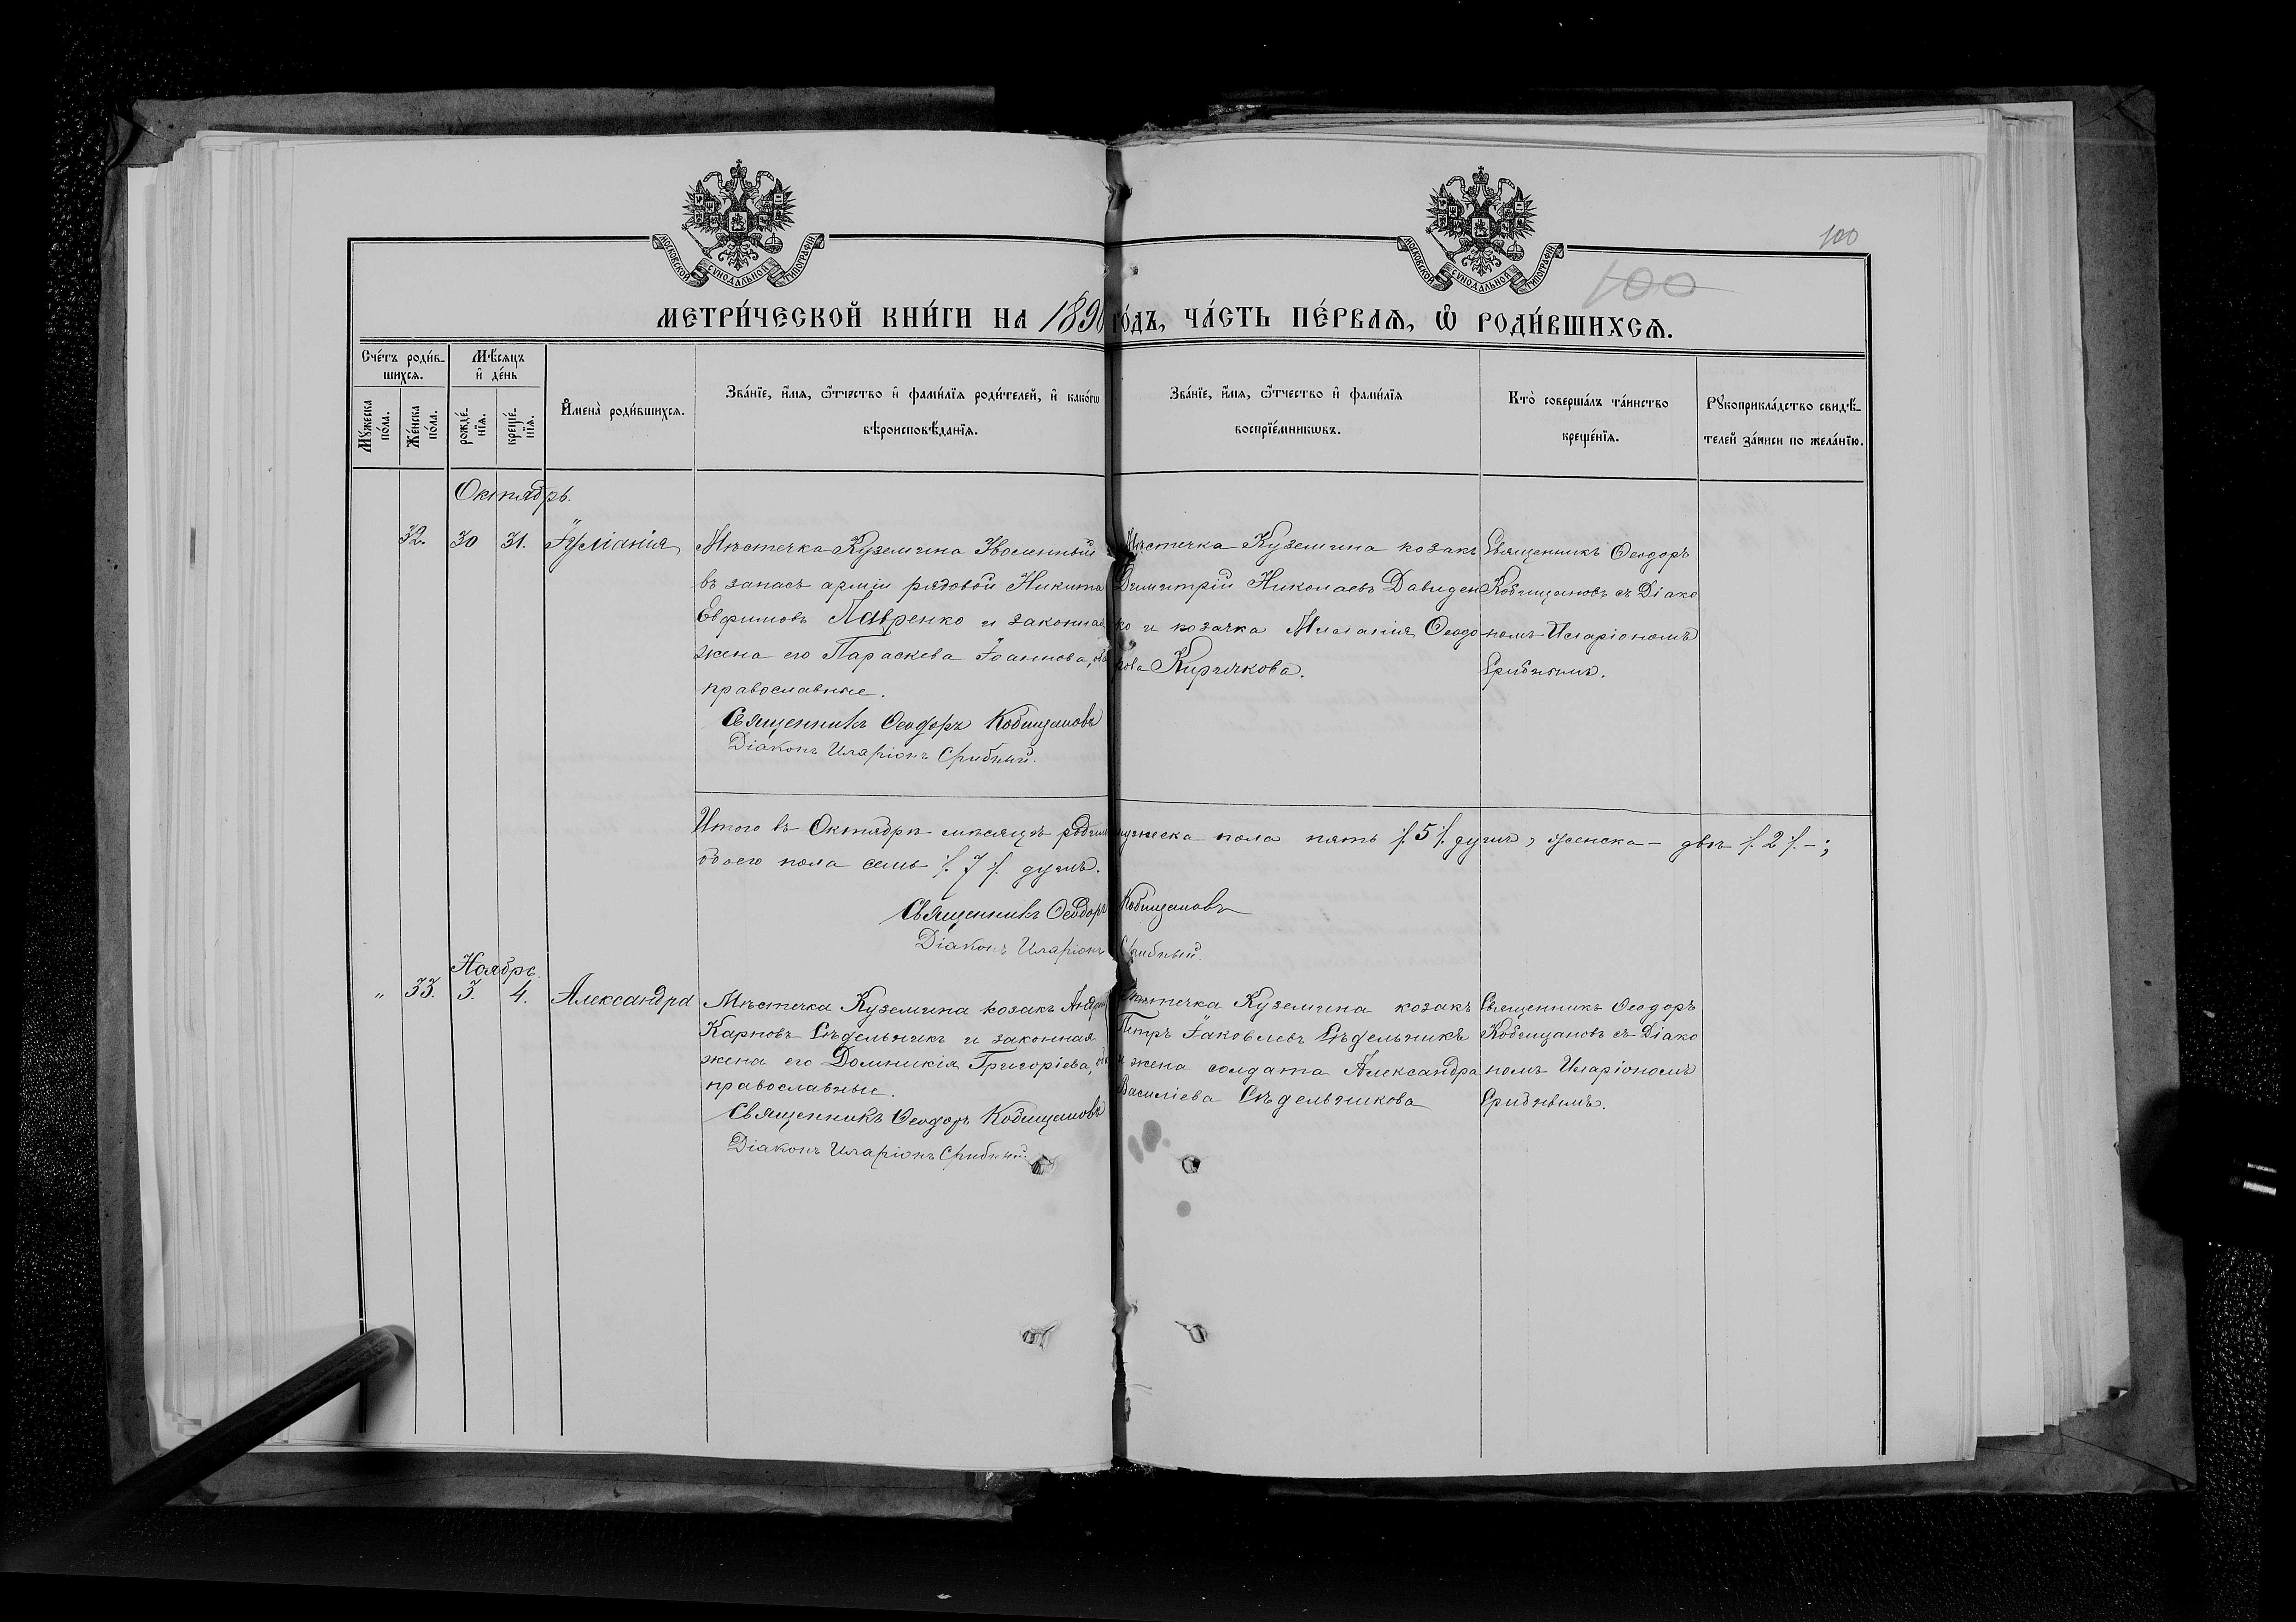 МОСКОВСКОЙ СѴНОДАЛЬНОЙ ТИПОГРАФІИ
МОСКОВСКОЙ СѴНОДАЛЬНОЙ ТИПОГРАФІИ
100
100
МЕТРИ́ЧЕСКОЙ КНИ́ГИ НА 1890 ГО́ДЪ, ЧА́СТЬ ПЕ́РВАЯ, Ѡ҆ РОДИ́ВШИХСѦ.
Сче́тъ роди́в-
шихсѧ.
Мѣ́сѧцъ
и҆ де́нь
Мꙋ́жеска
по́ла.
Же́нска
по́ла.
рожде́-
нїѧ.
креще́-
нїѧ.
И҆мена̀ роди́вшихсѧ.
Зва́нїе, и҆́мѧ, ѻ҆́тчество и҆ фами́лїѧ роди́телей, и҆ како́гѡ
вѣроисповѣ́данїѧ.
Зва́нїе, и҆́мѧ, ѻ҆́тчество и҆ фами́лїѧ
воспрїе́мникѡвъ.
Кто̀ соверша́лъ та́инство
креще́нїѧ.
Рꙋкоприкла́дство свидѣ́-
телей за́писи по жела́нїю.
Октябрь.
32. 30 31. Іуліанія
Мѣстечка Куземина Уволенный
въ запасъ арміи рядовой Никита
Евфимовъ Лавренко и законная
жена его Параскева Іоаннова, оба
православные.
Священникъ Ѳеодоръ Кобищановъ
Діаконъ Иларіонъ Срибный.
Мѣстечка Куземина козакъ
Димитрій Николаевъ Давиден
ко и козачка Миланія Ѳеодо
рова Киричкова.
Священникъ Ѳеодоръ
Кобищановъ съ Діако
номъ Иларіономъ
Срибнымъ.
Итого въ Октябрѣ мѣсяцѣ мужеска пола пять /.5/. душъ, женска – двѣ /.2/. –;
обоего пола семь /.7/. душъ.
Священникъ Ѳеодоръ Кобищановъ
Діаконъ Иларіонъ Срибный.
Ноябрь.
" 33. 3. 4. Александра
Мѣстечка Куземина козакъ Андрей
Карповъ Сѣдельникъ и законная
жена его Домникія Григоріева, оба
православные.
Священникъ Ѳеодоръ Кобищановъ
Діаконъ Иларіонъ Срибный.
Мѣстечка Куземина козакъ
Петръ Іаковлевъ Сѣдельникъ
и жена солдата Александра
Василіева Сѣдельникова
Священникъ Ѳеодоръ
Кобищановъ съ Діако
номъ Иларіономъ
Срибнымъ.